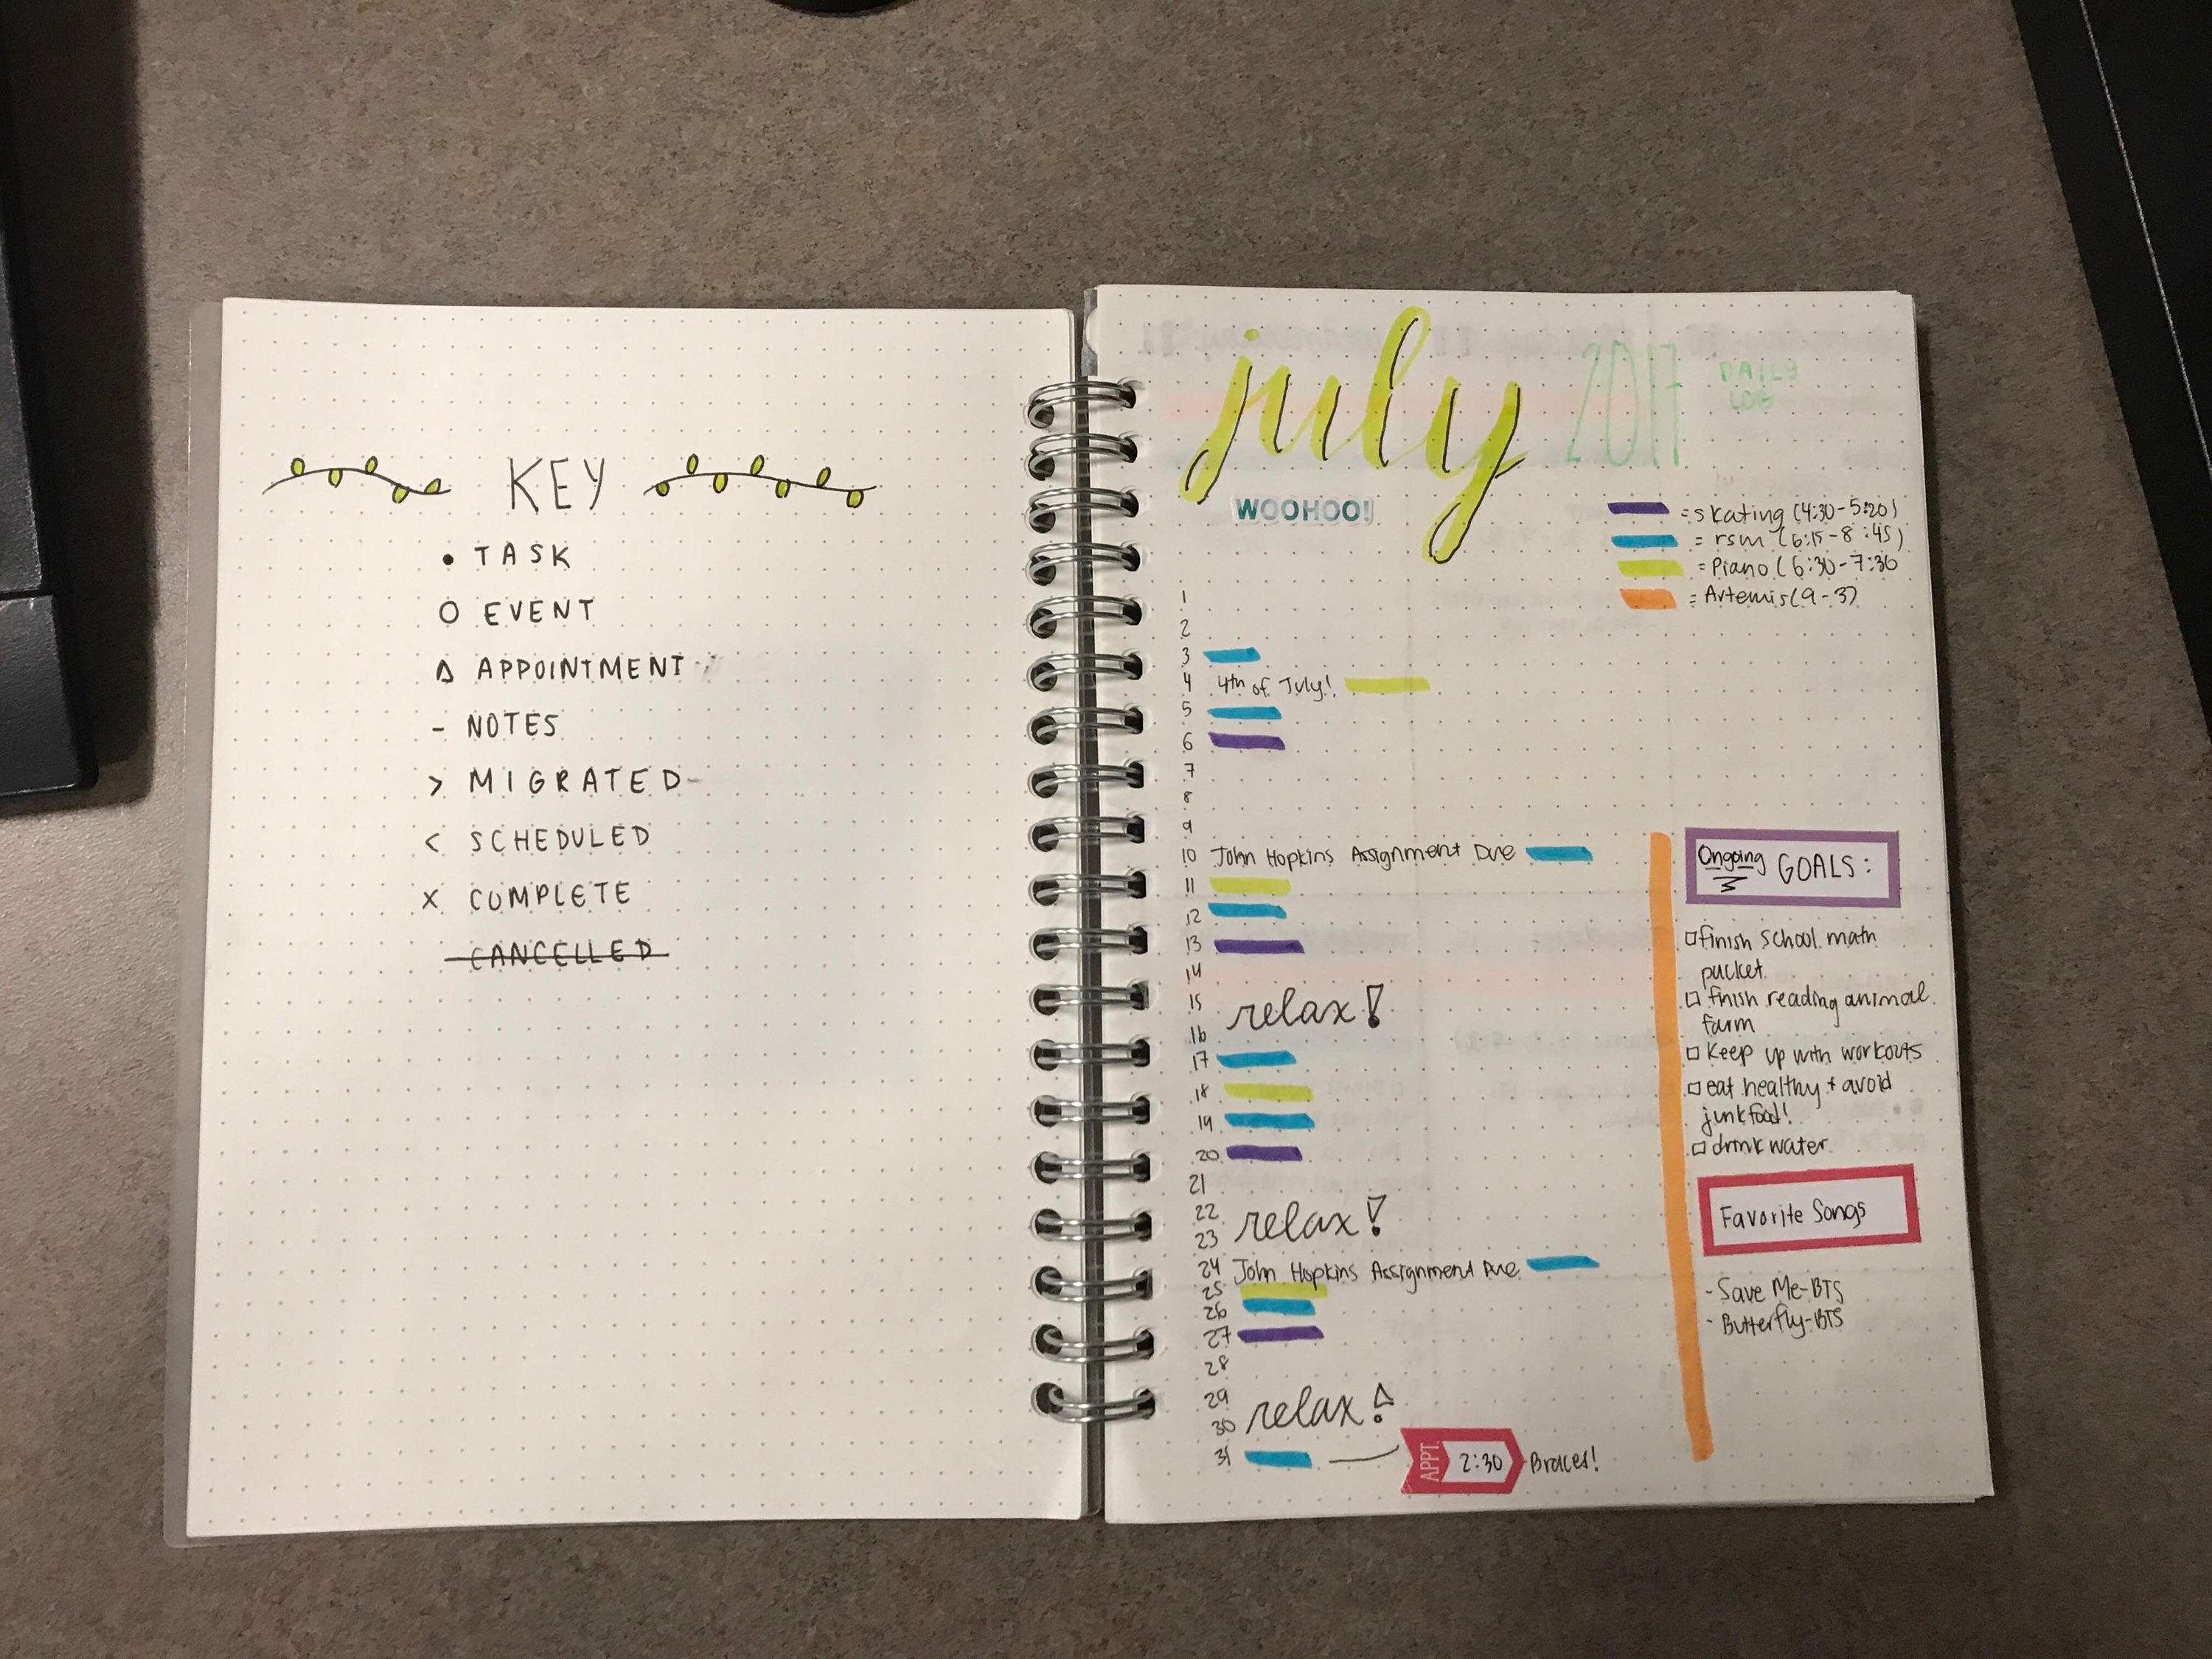 KEY
• TASK
O EVENT
Δ APPOINTMENT
- NOTES
> MIGRATED
< SCHEDULED
x COMPLETE
CANCELLED
july 2017 DAILY
LOG
WOOHOO!
= skating (4:30-5:20)
= rsm (6:15-8:45)
= Piano (6:30-7:30
= Artemis (9-3)
1
2
3
4 4th of July!
5
6
7
8
9
10 John Hopkins Assignment Due
11
12
13
14
15
relax!
16
17
18
19
20
21
22
relax!
23
24 John Hopkins Assignment Due
25
26
27
28
29
relax!
30
31 APPT. 2:30 Braces!
Ongoing GOALS:
□ finish school math
packet
□ finish reading animal
farm
□ keep up with workouts
□ eat healthy + avoid
junk food!
□ drink water
Favorite Songs
- Save Me-BTS
- Butterfly-BTS